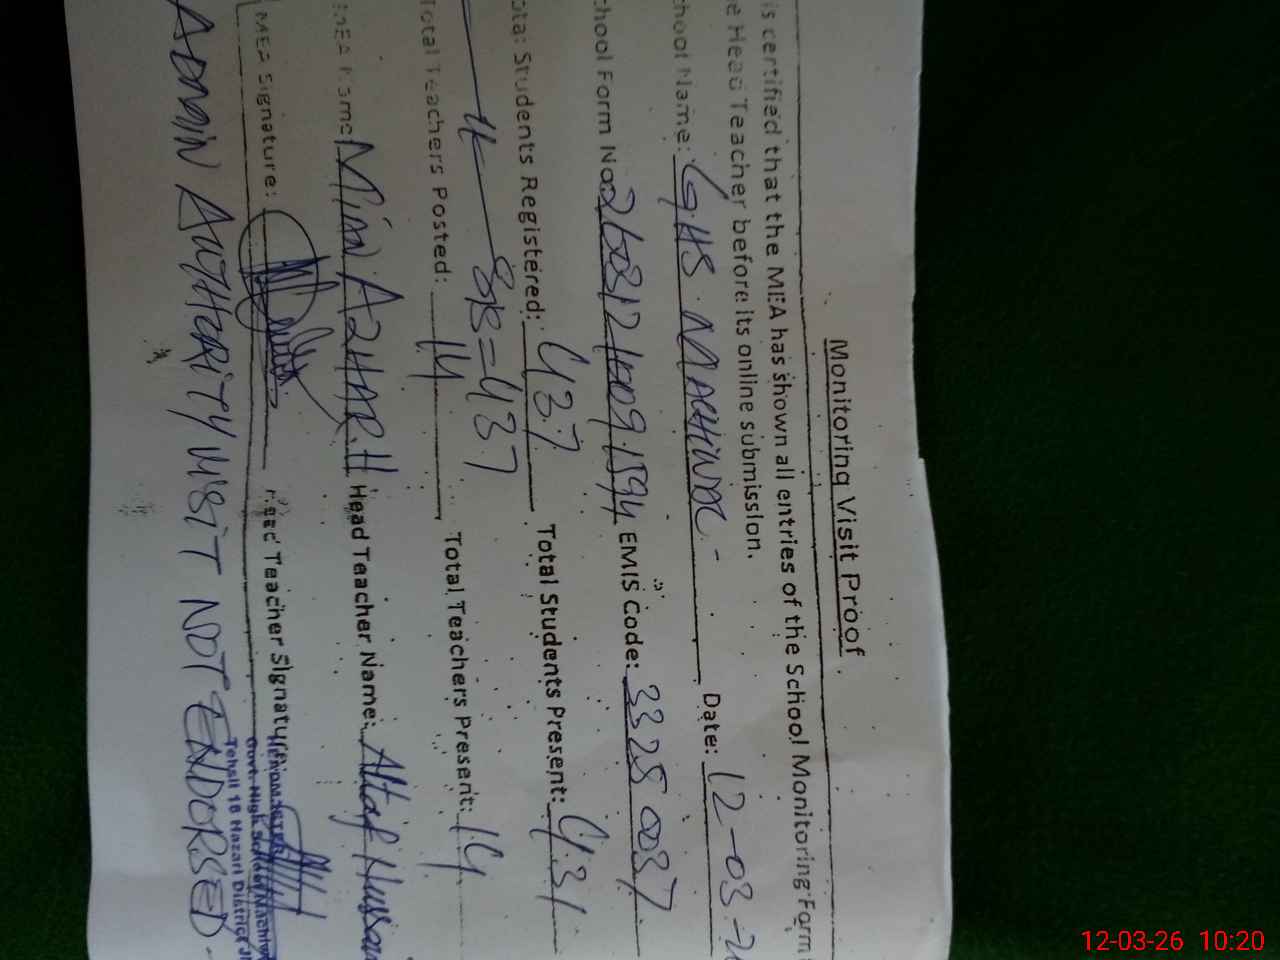 Monitoring Visit Proof
is certified that the MEA has shown all entries of the School Monitoring Form
e Head Teacher before its online submission.
chool Name: GHS MACHIWAL Date: 12-03-2
chool Form No: EMIS Code: 33250037
otal Students Registered: 437 Total Students Present: 431
8B=437
Total Teachers Posted: 14 Total Teachers Present: 14
MEA Name Mian AZHAR.H Head Teacher Name: Altaf Hussain
MEA Signature: Head Teacher Signature:
Govt. High School Machiwal
Tehsil 18 Hazari District Jh
ADMIN AUTHORITY VISIT NOT ENDORSED.
12-03-26 10:20